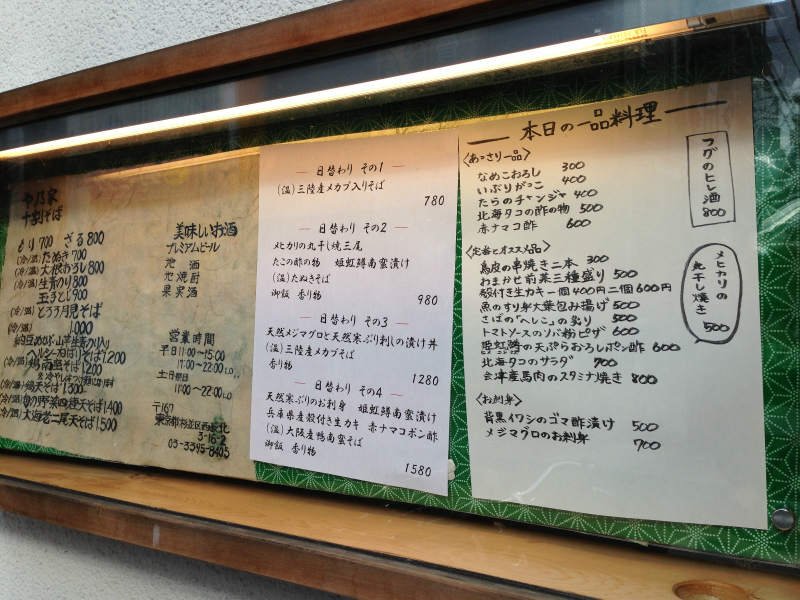 や乃家
十割そば
もり700 ざる800
(冷/温)たぬき700
(冷/温)大根おろし800
(冷/温)生青のり800
玉子とじ900
(冷/温)とろろ月見そば
1,000
1,200
(冷/温)鴨南蛮1200
1,300
天そば1,400
(冷/温)大海老二尾天そば1,500
美味しいお酒
プレミアムビール
地酒
地焼酎
果実酒
営業時間
平日11:00〜15:00
17:00〜22:00 L.O.
土日祭日
11:00〜22:00 L.O.
〒167
東京都杉並区西荻北
3-16-2
03-3395-8403
日替わり その1
(温)三陸産メカブ入りそば
780
日替わり その2
メヒカリの丸干し焼三尾
たこの酢の物 姫虹鱒南蛮漬け
(温)たぬきそば
御飯 香り物
980
日替わり その3
天然メジマグロと天然寒ぶり刺しの漬け丼
(温)三陸産メカブそば
香り物
1280
日替わり その4
天然寒ぶりのお刺身 姫虹鱒南蛮漬け
兵庫県産殻付き生カキ 赤ナマコポン酢
(温)大阪産鴨南蛮そば
御飯 香り物
1580
本日の一品料理
〈あっさり一品〉
なめこおろし 300
いぶりがっこ 400
たらのチャンジャ 400
北海タコの酢の物 500
赤ナマコ酢 600
〈定番とオススメ品〉
鳥皮の串焼き二本 300
おまかせ前菜三種盛り 500
殻付き生カキ一個400円二個600円
魚のすり身大葉包み揚げ 500
さばの「へしこ」の炙り 500
トマトソースのソバ粉ピザ 600
姫虹鱒の天ぷらおろしポン酢 600
北海タコのサラダ 700
会津産馬肉のスタミナ焼き 800
〈お刺身〉
背黒イワシのゴマ酢漬け 500
メジマグロのお刺身 700
フグのヒレ酒
800
メヒカリの
丸干し焼き
500